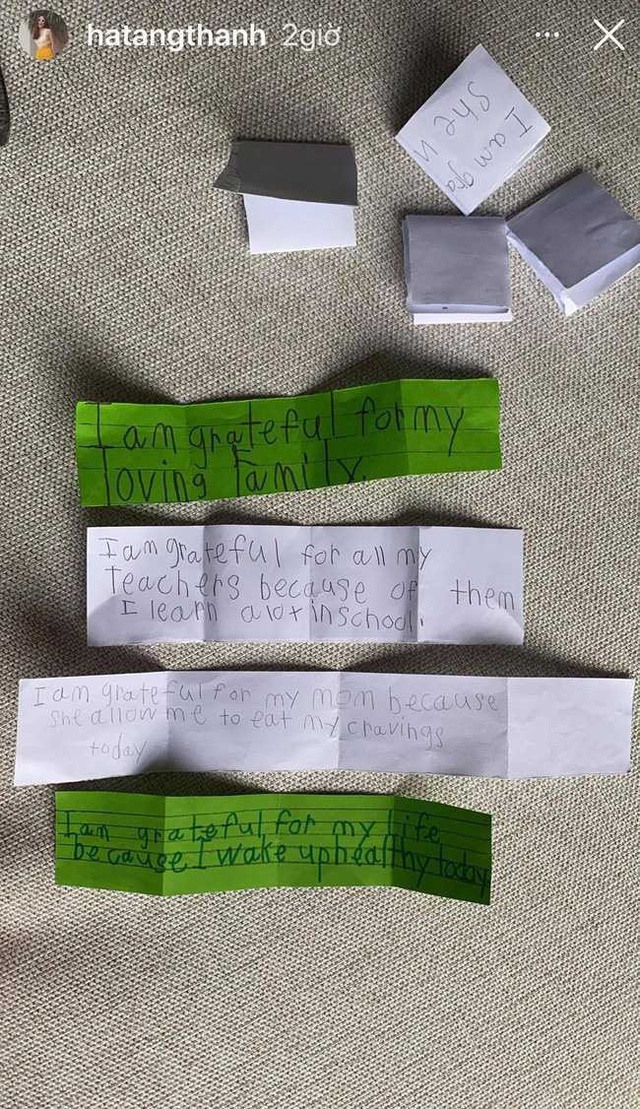 hatangthanh 2giờ
I am gra
she u
I am grateful for my
loving family.
I am grateful for all my
teachers because of them
I learn alot in school.
I am grateful for my mom because
she allow me to eat my cravings
today
I am grateful for my life
because I wake up healthy today